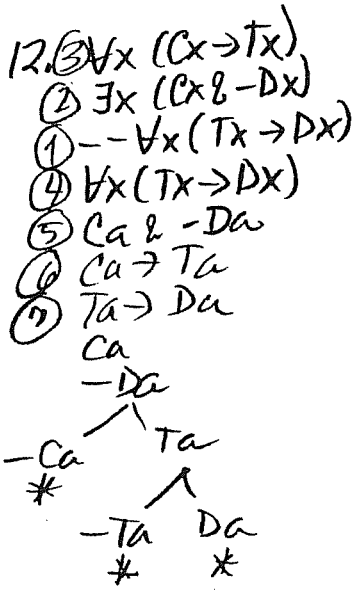 12. ③ ∀x (Cx→Tx)
② ∃x (Cx & -Dx)
① --∀x (Tx → Dx)
④ ∀x (Tx→Dx)
⑤ Ca & -Da
⑥ Ca → Ta
⑦ Ta → Da
Ca
-Da
-Ca Ta
* 
-Ta Da
* *